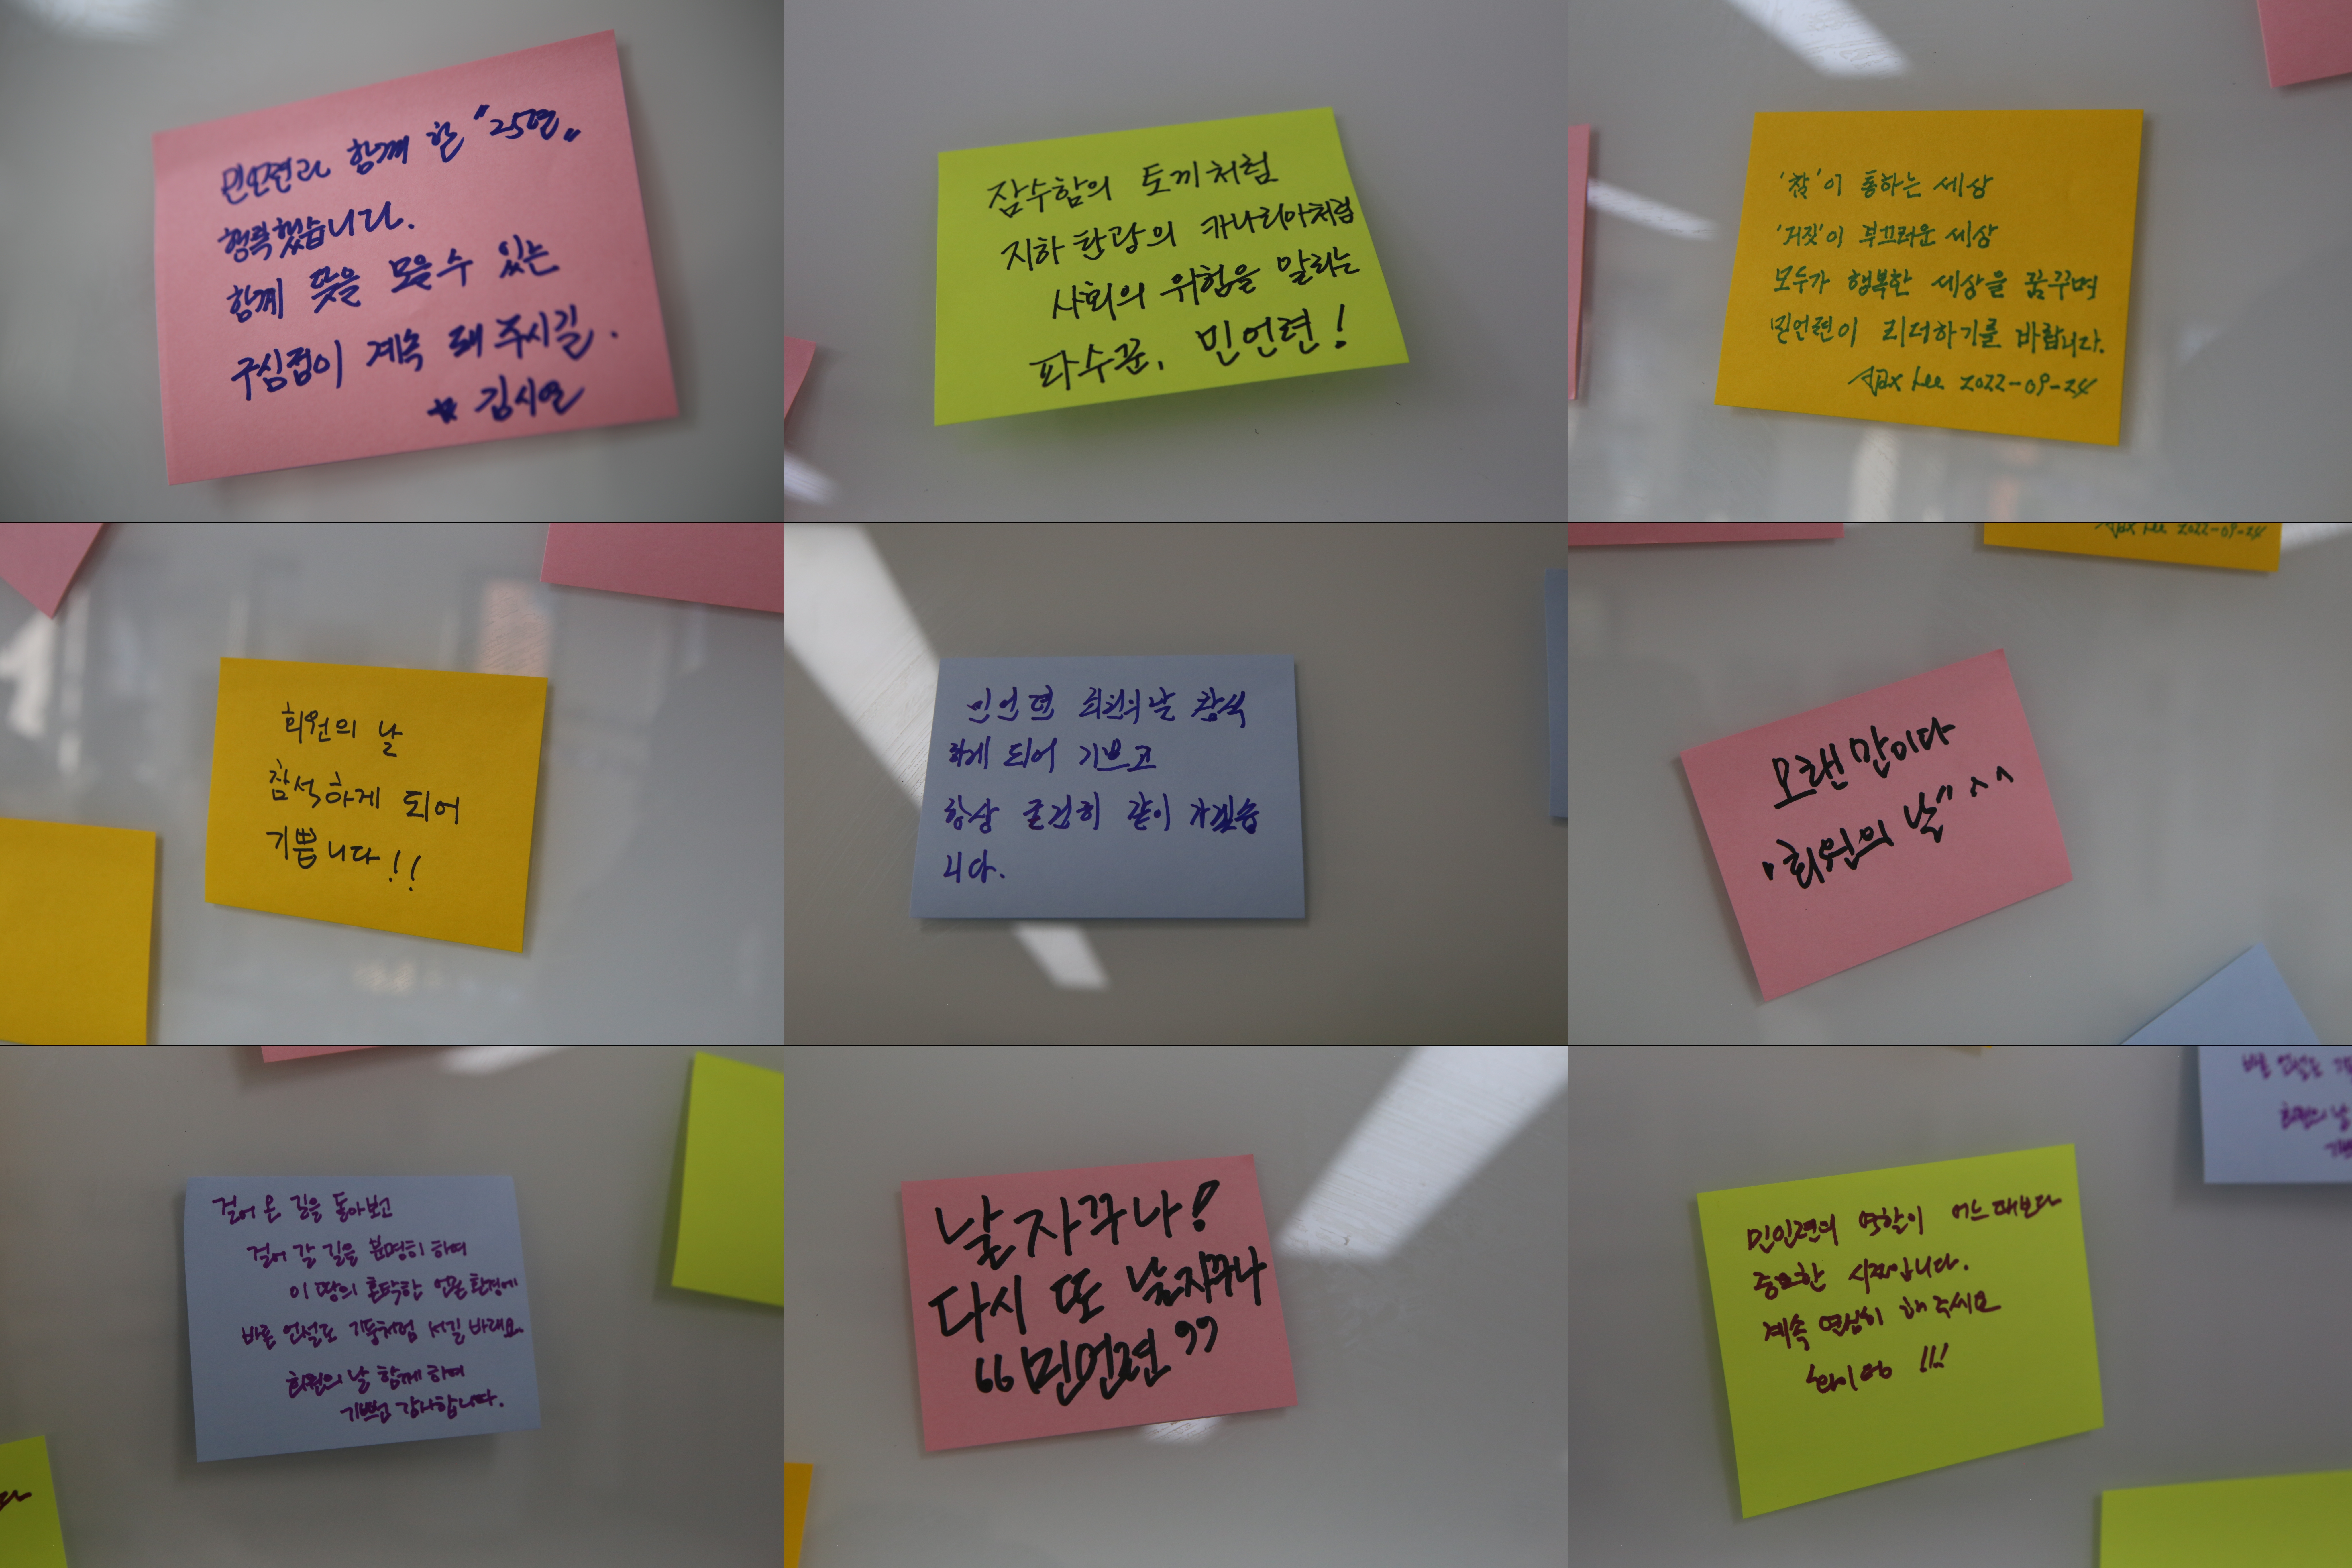 민언련과 함께 한 "25년"
행복했습니다.
함께 뜻을 모을 수 있는
구심점이 계속 돼 주시길.
김시연
잠수함의 토끼처럼
지하 탄광의 카나리아처럼
사회의 위험을 말하는
파수꾼, 민언련!
'참'이 통하는 세상
'거짓'이 부끄러운 세상
모두가 행복한 세상을 꿈꾸며
민언련이 리더하기를 바랍니다.
Lee 2022-09-24
회원의 날
참석하게 되어
기쁩니다!!
민언련 회원의 날 참석
하게 되어 기쁘고
항상 굳건히 같이 가겠습
니다.
오랜만이다
"회원의 날" ^^
걸어 온 길을 돌아보고
걸어 갈 길을 분명히 하며
이 땅의 혼탁한 언론 환경에
바른 언설로 기둥처럼 서길 바래요
회원의 날 함께 하여
기쁘고 감사합니다.
날자꾸나!
다시 또 날자꾸나
"민언련"
민언련의 역할이 어느 때보다
중요한 시점입니다.
계속 열심히 해 주세요
화이팅 !!!